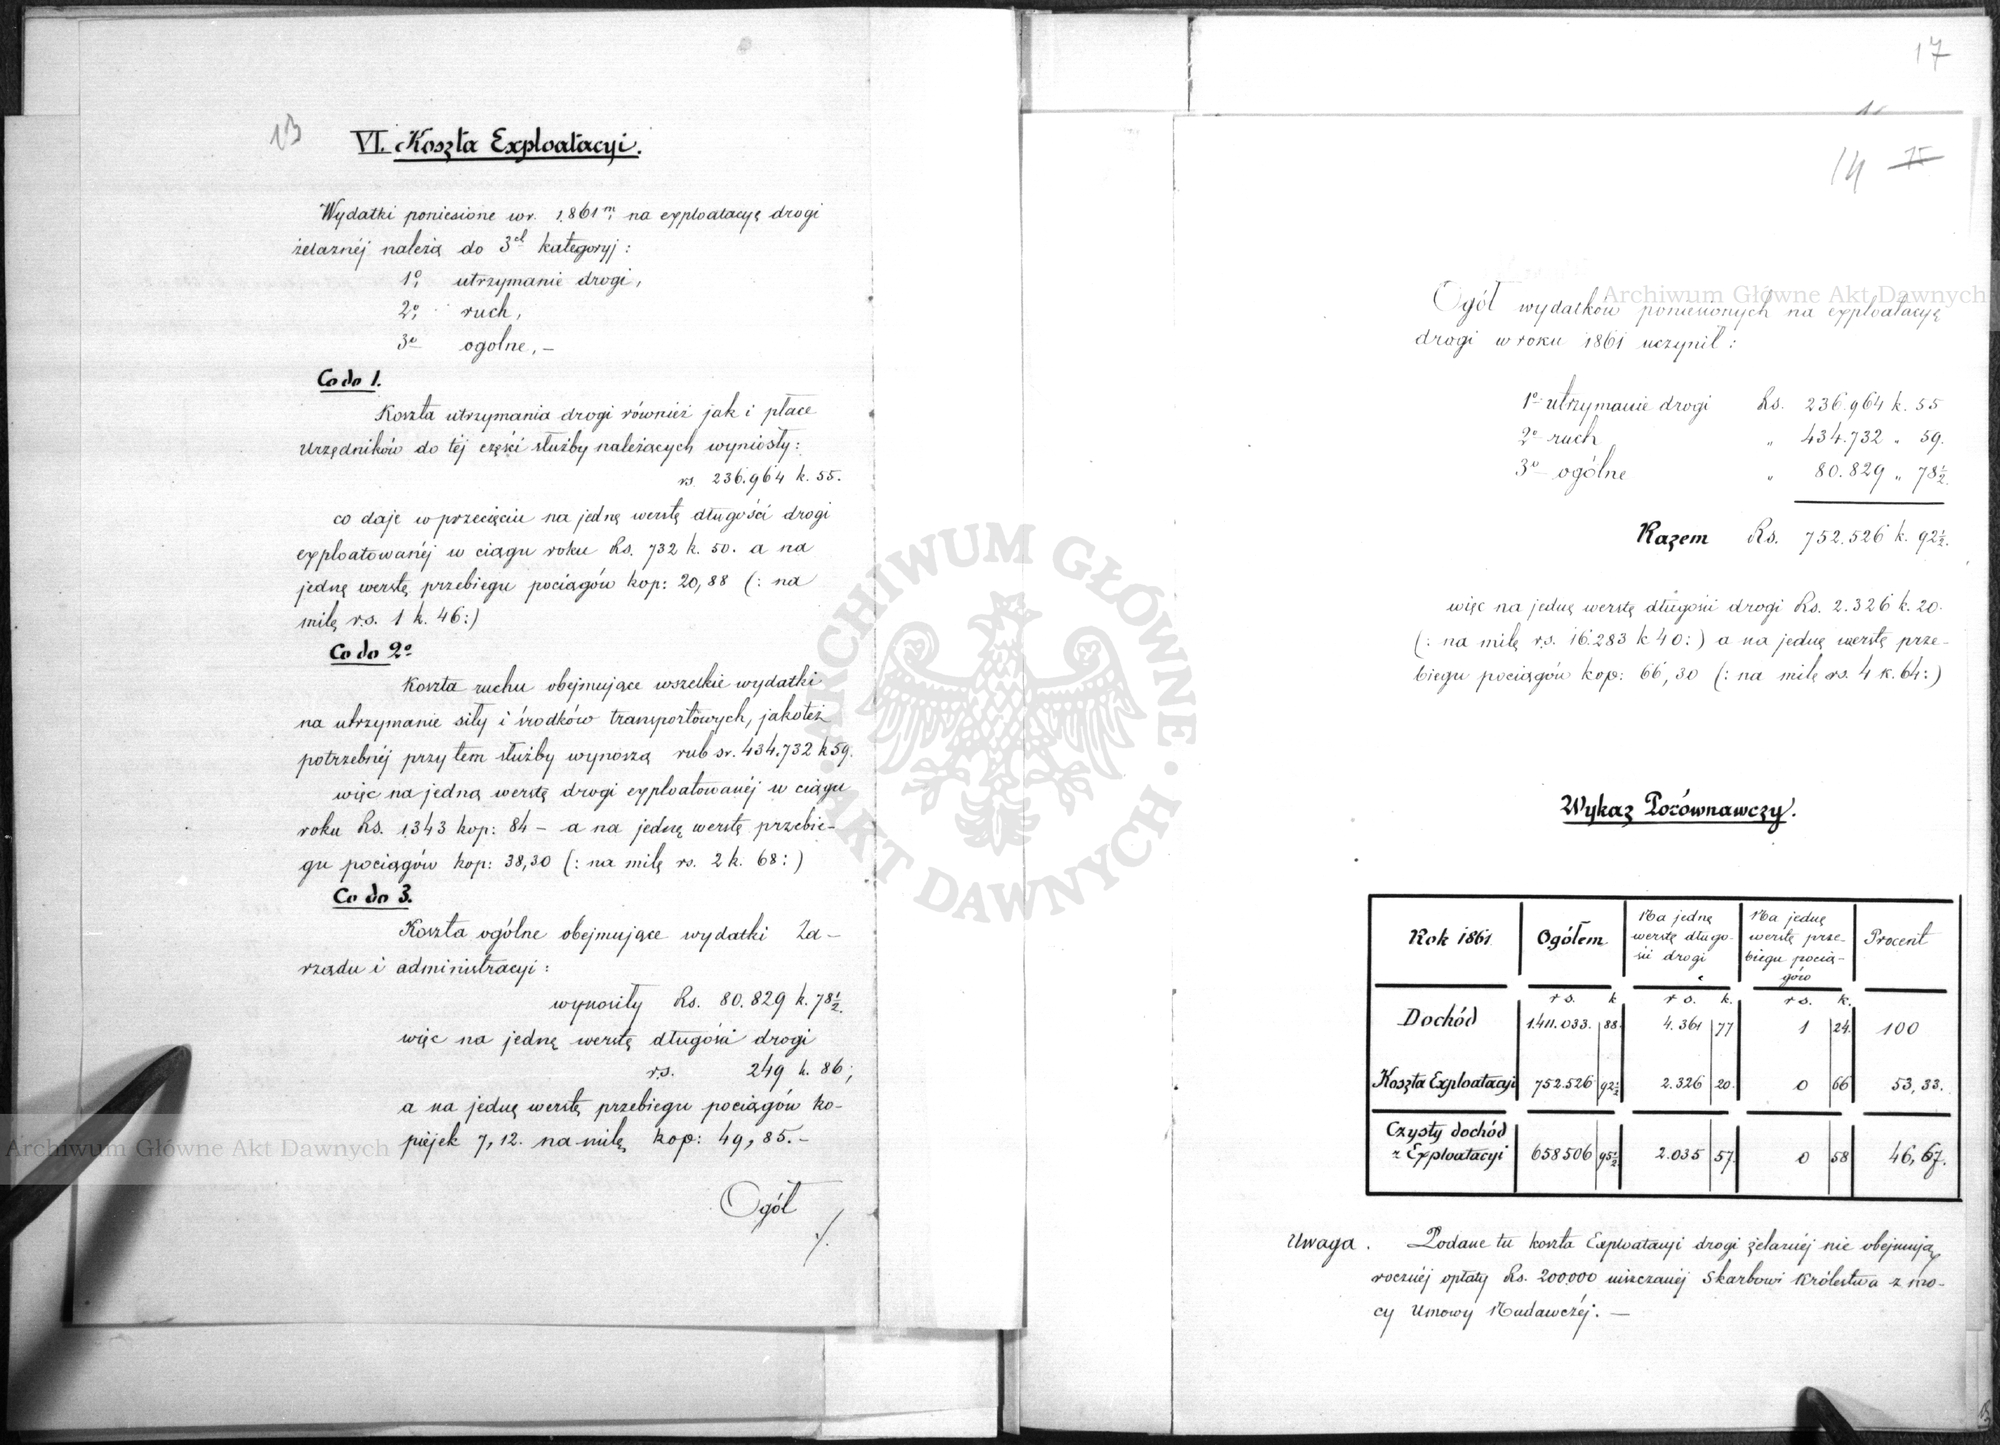 13
VI. Koszta Exploatacyi.
Wydatki poniesione w r. 1861m, na exploatacyę drogi
żelaznéj należą do 3ch kategoryj:
1o, utrzymanie drogi,
2o, ruch,
3o ogolne, –
Co do 1.
Koszta utrzymania drogi również jak i płace
Urzędników do téj części służby należących wyniosły:
rs. 236.964 k. 55.
co daje w przecięciu na jednę werstę długości drogi
exploatowanéj w ciągu roku Rs. 732 k. 50. a na
jednę werstę przebiegu pociągów kop: 20,88 (: na
milę r.s. 1 k. 46:)
Co do 2o
Koszta ruchu obejmujące wszelkie wydatki
na utrzymanie siły i środków transportowych, jakoteż
potrzebnéj przytem służby wynoszą rub sr. 434.732 k 59.
więc na jedną werstę drogi exploatowanéj w ciągu
roku Rs. 1343 kop: 84 – a na jednę werstę przebie-
gu pociągów kop: 38,30 (: na milę rs. 2 k. 68:)
Co do 3.
Koszta ogólne obejmujące wydatki Za-
rządu i administracyi:
wynosiły Rs. 80.829 k. 78½.
więc na jednę werstę długości drogi
r.s. 249 k. 86;
a na jednę werstę przebiegu pociągów ko-
piéjek 7,12. na milę kop: 49,85.–
Ogół
./.
17
14
Ogół wydatków poniesionych na exploatacyą
drogi w roku 1861 uczynił:
1o utrzymanie drogi Rs. 236.964 k. 55
2o ruch „ 434.732 „ 59.
3o ogólne „ 80.829 „ 78½.
Razem Rs. 752.526 k. 92½.
więc na jednę werstę długości drogi Rs. 2.326 k. 20.
(: na milę r.s. 16.283 k 40:) a na jednę werstę prze-
biegu pociągów kop: 66,30 (: na milę rs. 4 k. 64:)
Wykaz Porównawczy.
Rok 1861 Ogółem Na jednę werstę długo-ści drogi Na jednę werstę prze-biegu pocią-gów Procent
rs. k rs. k. rs. k.
Dochód 1.411.033. 88. 4.361 77 1 24. 100
Koszta Exploatacyi 752.526 92½ 2.326 20. 0 66 53,33.
Czysty dochód
z Exploatacyi 658506 95½. 2.035 57. 0 58 46,67.
Uwaga. Podane tu koszta Exploatacyi drogi żelaznéj nie obejmują
rocznéj opłaty Rs. 200.000 uiszczanéj Skarbowi Królestwa z mo-
cy Umowy Nadawczéj. –
Archiwum Główne Akt Dawnych
Archiwum Główne Akt Dawnych
ARCHIWUM GŁÓWNE · AKT DAWNYCH ·